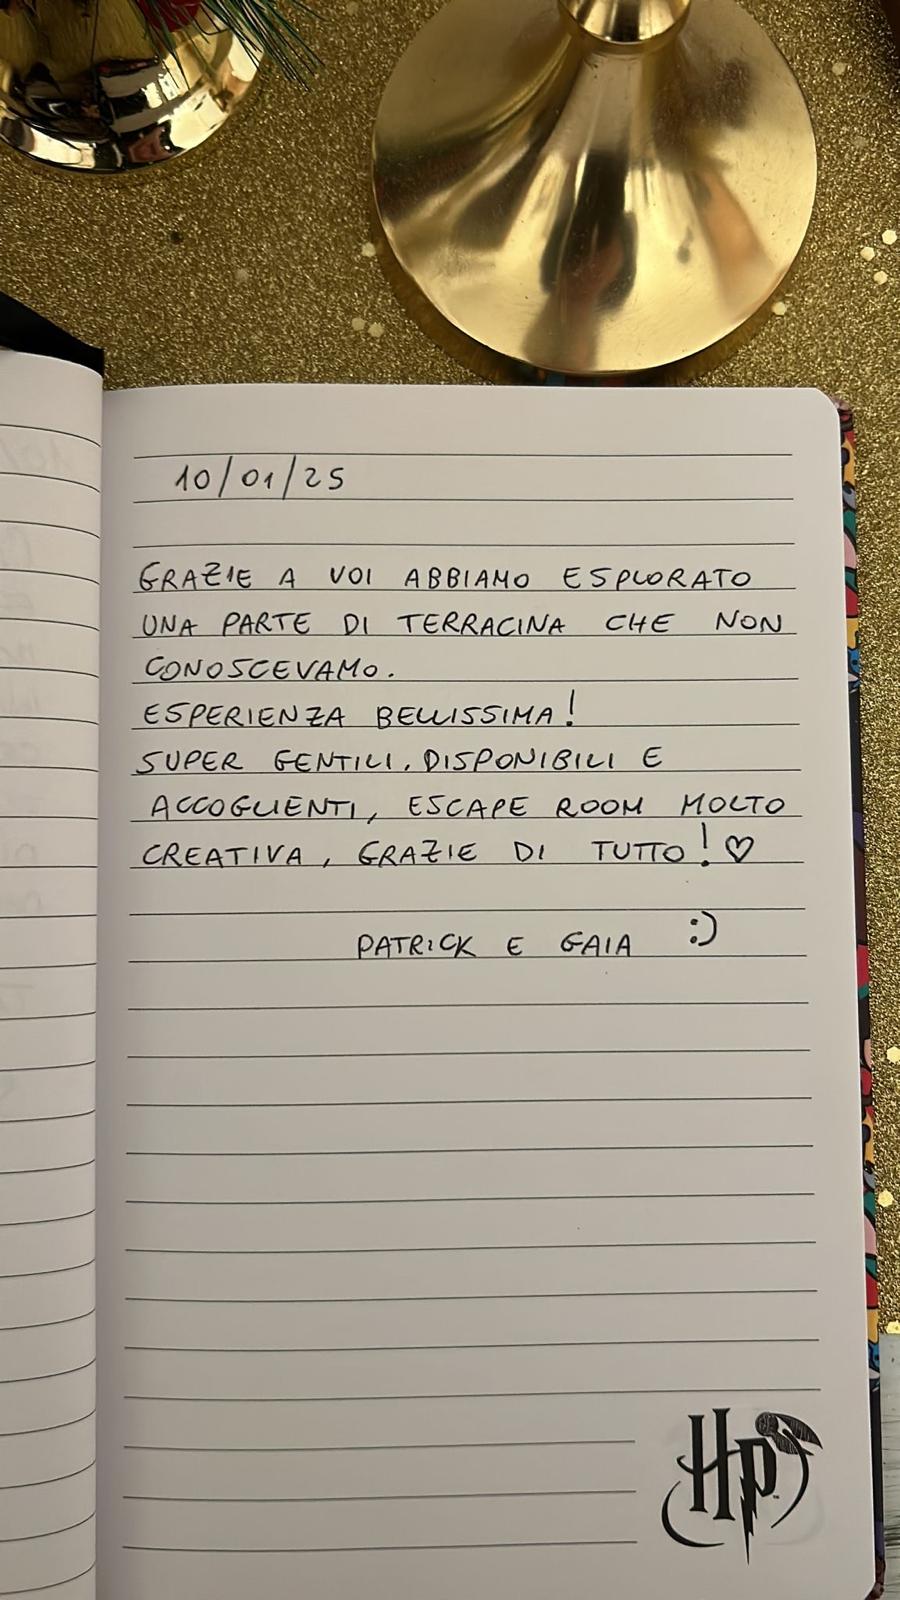 10/01/25
GRAZIE A VOI ABBIAMO ESPLORATO
UNA PARTE DI TERRACINA CHE NON
CONOSCEVAMO.
ESPERIENZA BELLISSIMA!
SUPER GENTILI, DISPONIBILI E
ACCOGLIENTI, ESCAPE ROOM MOLTO
CREATIVA, GRAZIE DI TUTTO! ♡
PATRICK E GAIA :)
HP